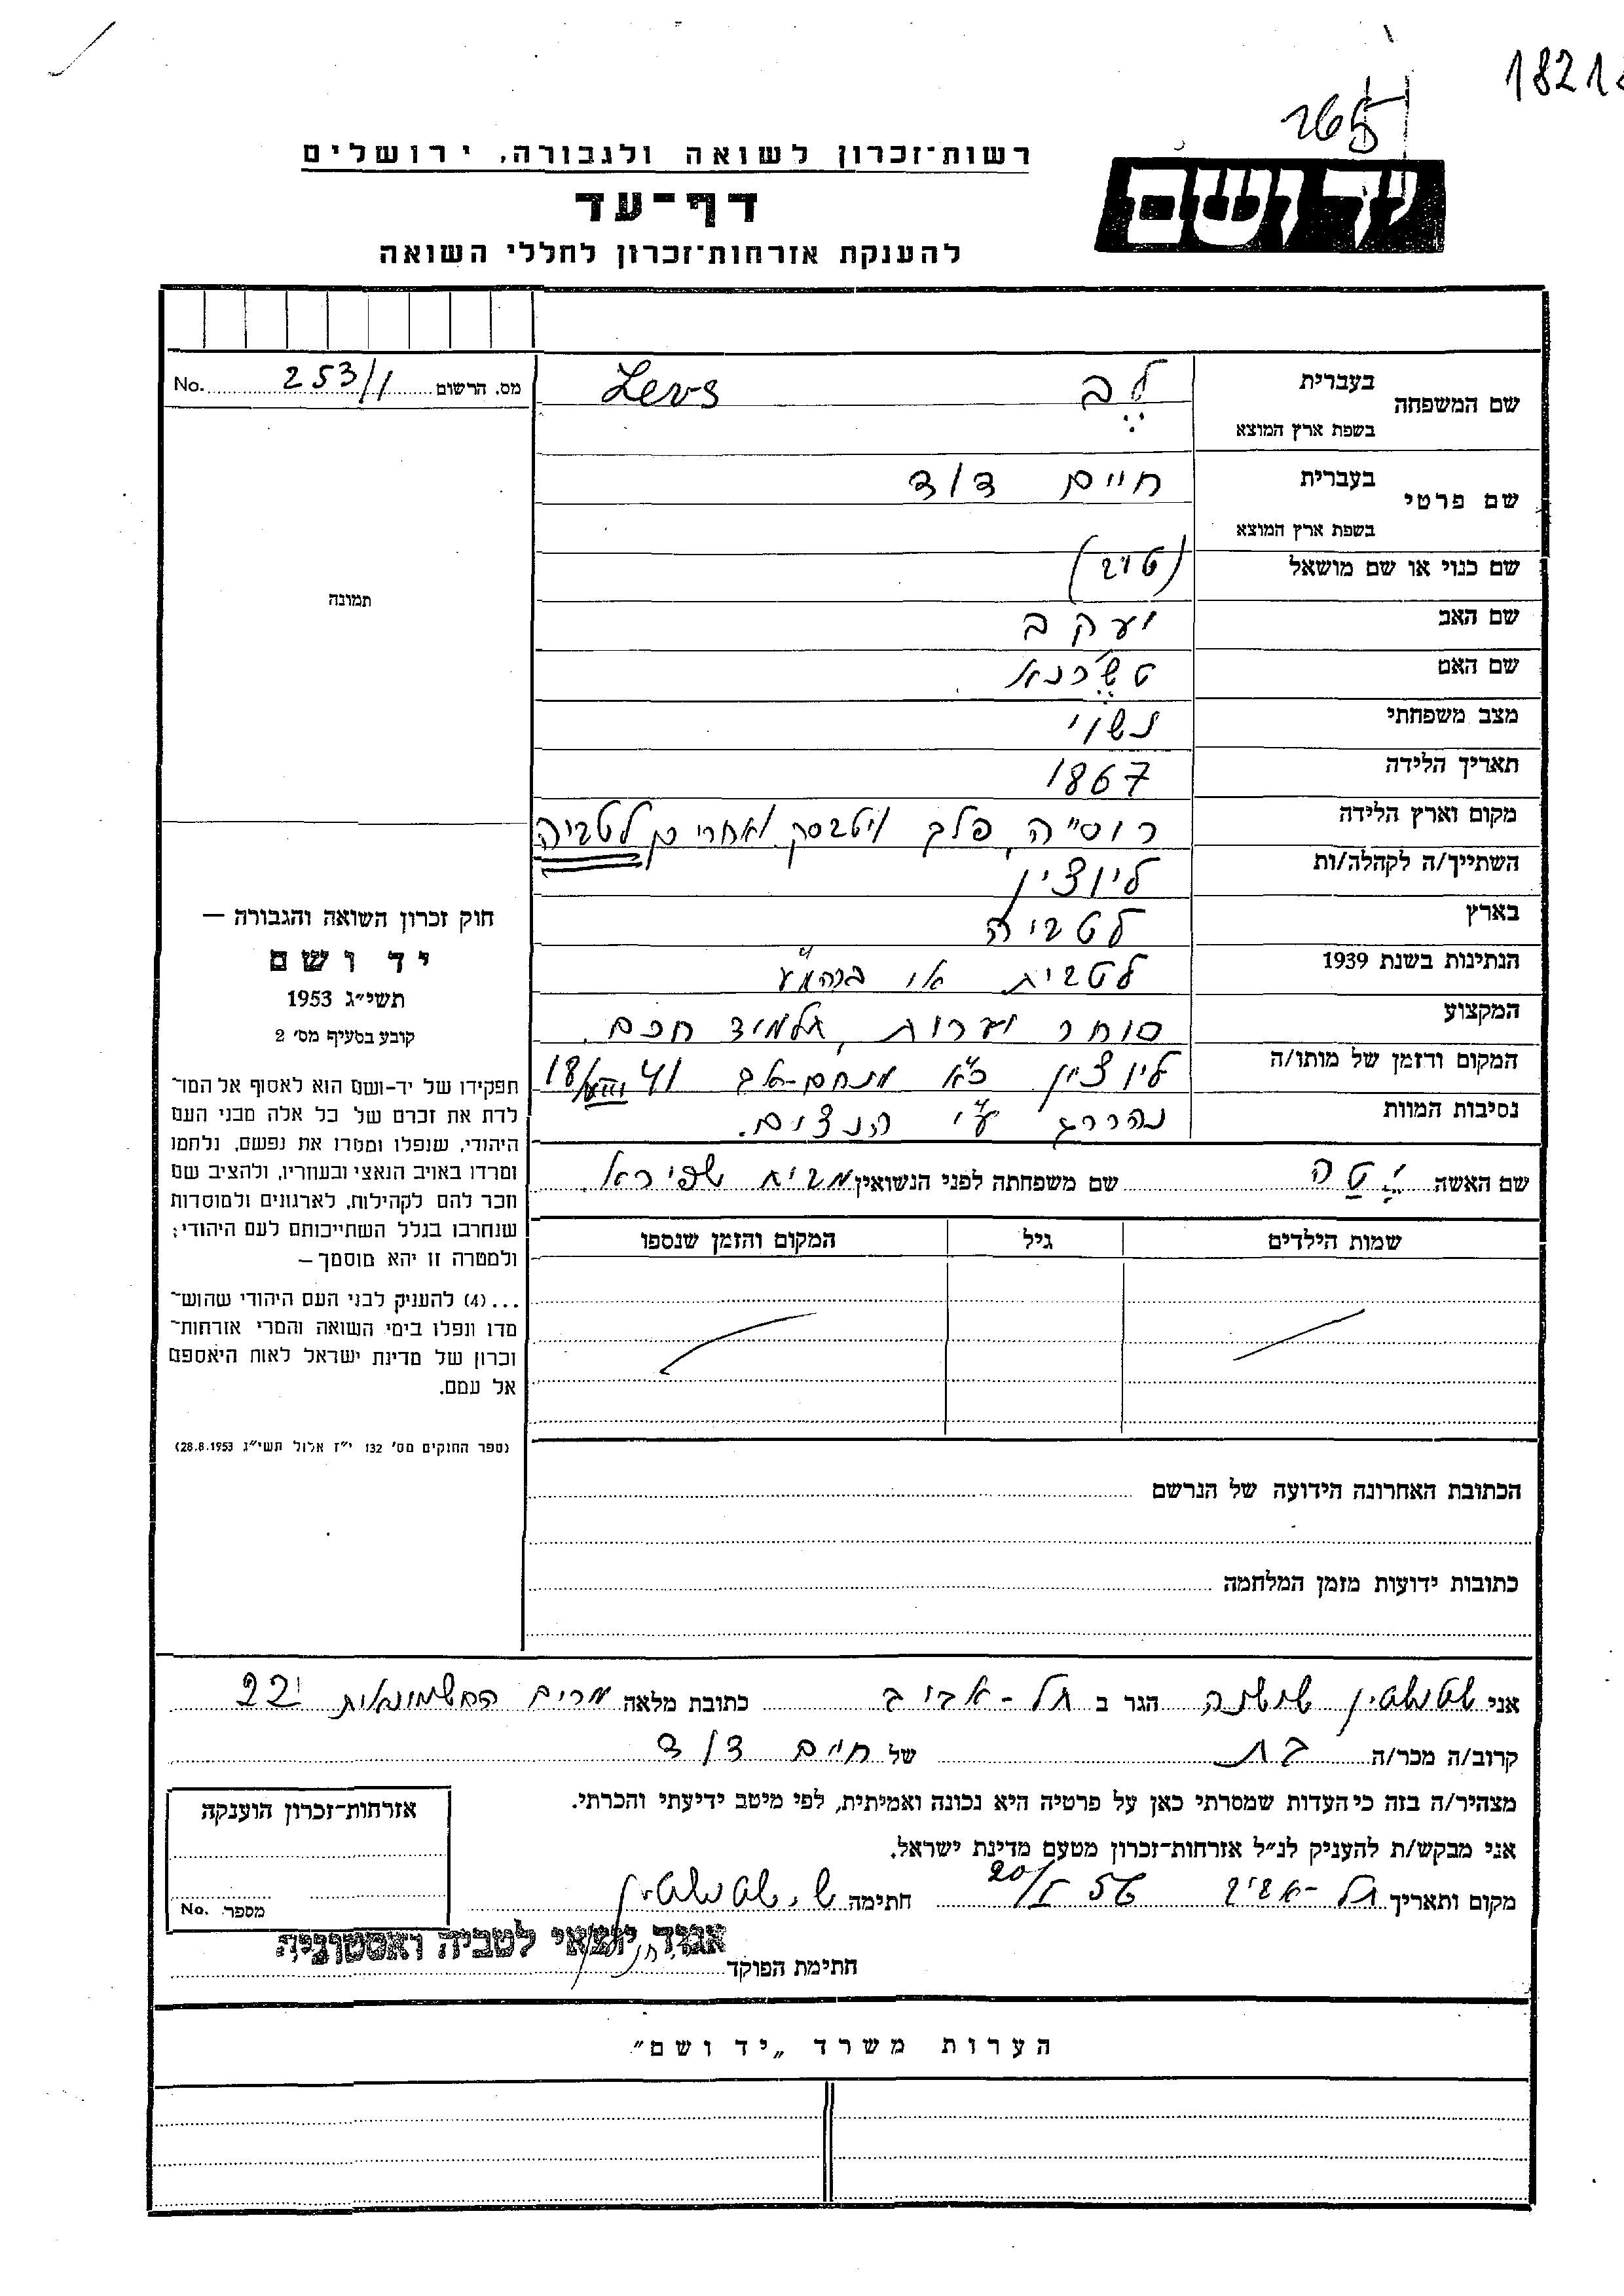 1821
265
רשות־זכרון לשואה ולגבורה, ירושלים
יד ושם
דף־עד
להענקת אזרחות־זכרון לחללי השואה
מס. הרשום 253/1 No.
שם המשפחה בעברית לב Levs
בשפת ארץ המוצא
שם פרטי בעברית חיים דוד
בשפת ארץ המוצא
שם כנוי או שם מושאל
שם האב יעקב
שם האם
מצב משפחתי נשוי
תאריך הלידה 1867
מקום וארץ הלידה רוסיה, פלך ויטבסק ואחרי כן לטביה
השתייך/ה לקהלה/ות ליוצין
בארץ לטביה
הנתינות בשנת 1939 לטבית או ברה"מ
המקצוע סוחר יערות, תלמיד חכם.
המקום והזמן של מותו/ה ליוצין כ"א מנחם-אב 41 18/VIII
נסיבות המוות נהרג ע"י הנצים.
שם האשה יטה שם משפחתה לפני הנשואין מבית שפירא.
שמות הילדים גיל המקום והזמן שנספו
הכתובת האחרונה הידועה של הנרשם
כתובות ידועות מזמן המלחמה
תמונה
חוק זכרון השואה והגבורה —
יד ושם
תשי״ג 1953
קובע בסעיף מס׳ 2
תפקידו של יד-ושם הוא לאסוף אל המו־
לדת את זכרם של כל אלה מבני העם
היהודי, שנפלו ומסרו את נפשם, נלחמו
ומרדו באויב הנאצי ובעוזריו, ולהציב שם
וזכר להם לקהילות, לארגונים ולמוסדות
שנחרבו בגלל השתייכותם לעם היהודי;
ולמטרה זו יהא מוסמך —
...(4) להעניק לבני העם היהודי שהוש־
מדו ונפלו בימי השואה והמרי אזרחות־
זכרון של מדינת ישראל לאות היאספם
אל עמם.
(ספר החוקים מס׳ 132 י״ז אלול תשי״ג 28.8.1953)
אני שושנה הגר ב תל-אביב כתובת מלאה מרים החשמונאית 22
קרוב/ה מכר/ה בת של חיים דוד
מצהיר/ה בזה כי העדות שמסרתי כאן על פרטיה היא נכונה ואמיתית, לפי מיטב ידיעתי והכרתי.
אני מבקש/ת להעניק לנ״ל אזרחות־זכרון מטעם מדינת ישראל.
מקום ותאריך תל-אביב 56 חתימה
אגוד יוצאי לטביה ואסטוניה
חתימת הפוקד
אזרחות־זכרון הוענקה
מספר No.
הערות משרד „יד ושם״